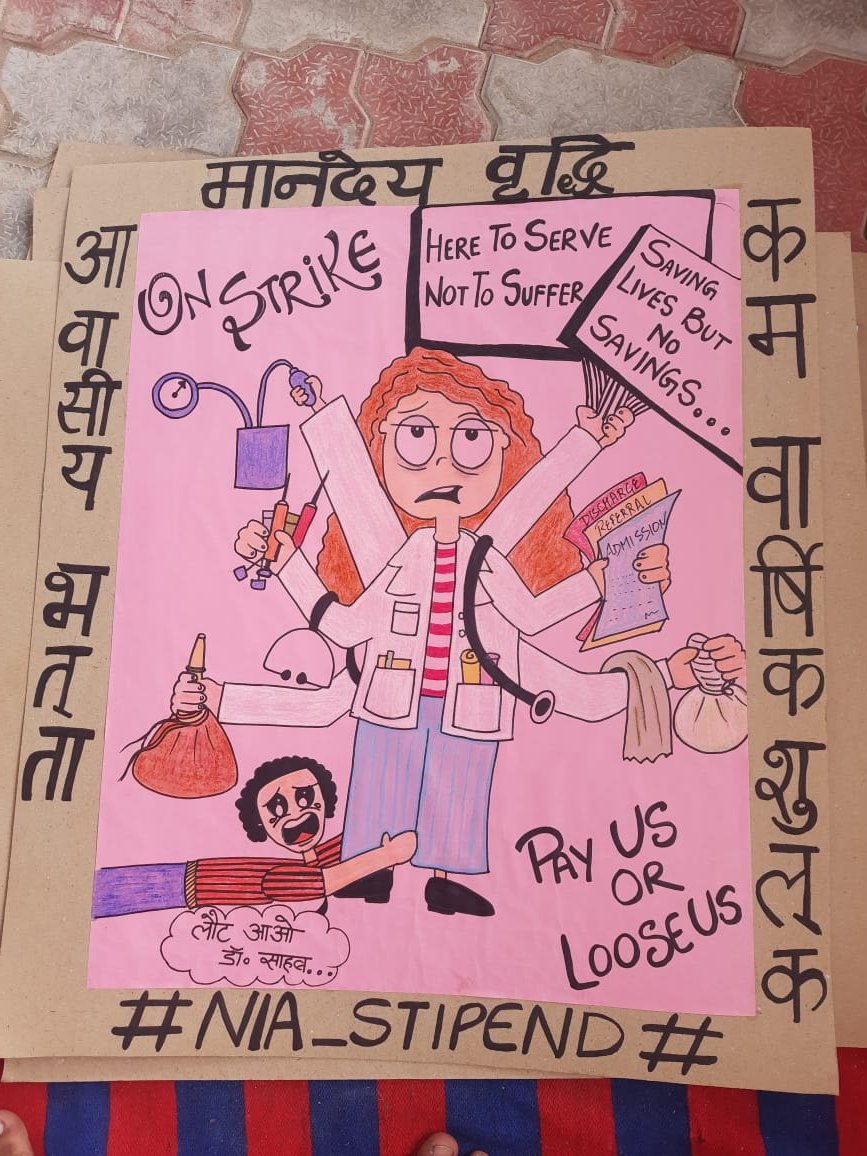 मानदेय वृद्धि
आवासीय भत्ता
ON STRIKE
HERE TO SERVE
NOT TO SUFFER
SAVING
LIVES BUT
NO
SAVINGS...
DISCHARGE
REFERRAL
ADMISSION
PAY US
OR
LOOSE US
लौट आओ
डॉ० साहब...
कम वार्षिक शुल्क
#NIA_STIPEND#